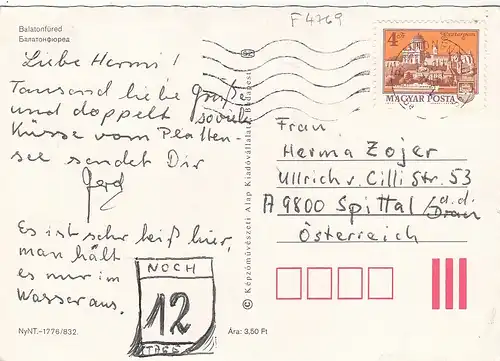 F4769
Balatonfüred
Балатонфюред
Liebe Hermi!
Tausend liebe Grüße
und doppelt soviele
Küsse vom Platten-
see sendet Dir
Gerd
Es ist sehr heiß hier,
man hält
es nur im
Wasser aus.
NOCH
12
TAGE
NyNT.–1776/832.
Ára: 3,50 Ft
© Képzőművészeti Alap Kiadóvállalata, Budapest
4 Ft
Esztergom
MAGYAR POSTA
Frau
Herma Zojer
Ullrich v. Cilli Str. 53
A 9800 Spittal a.d.
Drau
Österreich